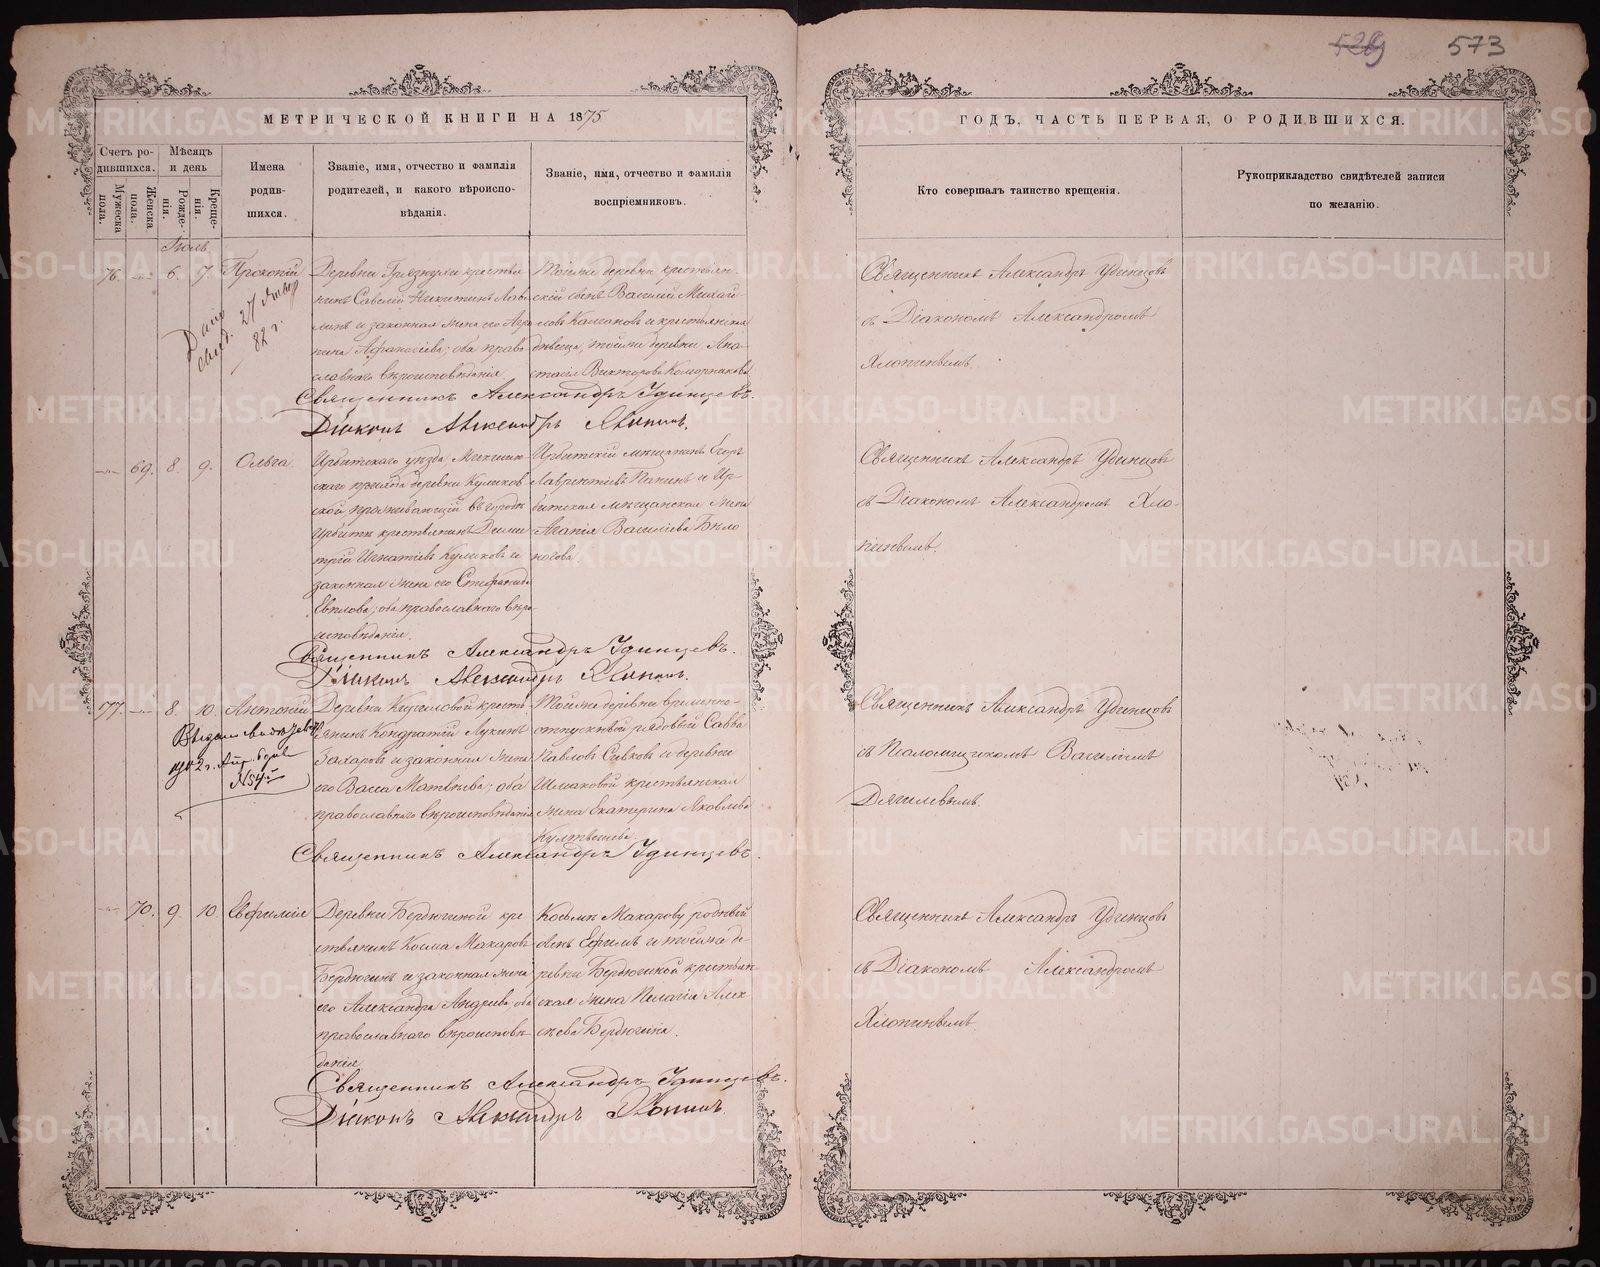 529 573
МЕТРИЧЕСКОЙ КНИГИ НА 1875
ГОДЪ, ЧАСТЬ ПЕРВАЯ, О РОДИВШИХСЯ.
Счетъ ро-
дившихся.
Мужеска
пола.
Женска
пола.
Мѣсяцъ
и день
Рожде-
нія.
Креще-
нія.
Имена
родив-
шихся.
Званіе, имя, отчество и фамилія
родителей, и какого вѣроиспо-
вѣданія.
Званіе, имя, отчество и фамилія
воспріемниковъ.
Кто совершалъ таинство крещенія.
Рукоприкладство свидѣтелей записи
по желанію.
Іюль
76. 6. 7. Прокопій
Дано
свид. 27 Январ
82 г.
нинъ Савелій Никитинъ
и законная жена его Агри
пина Афанасіева; оба право
славнаго вѣроисповѣданія
Тойже деревни крестьян-
скій сынъ Василій Михай-
ловъ и крестьянская
дѣвица, тойже деревни Ана-
стасія Викторова
Священникъ Александръ Удинцовъ
съ Діакономъ Александромъ
Хлопинымъ.
Священникъ Александръ Удинцевъ.
Діаконъ Александръ Хлопинъ.
69. 8. 9. Ольга.
Ирбитскаго уѣзда,
скаго прихода деревни Куликов
ской проживающій въ городѣ
Ирбити крестьянинъ Дими
трій Игнатіевъ Куликовъ и
законная жена его Стефанида
Евплова; оба православнаго вѣро
исповѣданія.
Ирбитскій мѣщанинъ Егоръ
Лаврентіевъ Папинъ и Ир-
битская мѣщанская жена
Агапія Василіева Бѣло
носова.
Священникъ Александръ Удинцовъ
съ Діакономъ Александромъ Хло-
пинымъ.
Священникъ Александръ Удинцевъ.
Діаконъ Александръ Хлопинъ.
77. 8. 10. Антоній
1902 г.
Деревни кресть
янинъ Кондратій Лукинъ
Захаровъ и законная жена
его Васса Матвѣева; оба
православнаго вѣроисповѣданія
Тойже деревни временно-
отпускной рядовый Савва
Павловъ Сивковъ и деревни
Шмаковой крестьянская
жена Екатерина Яковлева
Священникъ Александръ Удинцовъ
съ Псаломщикомъ Василіемъ
Дягилевымъ.
Священникъ Александръ Удинцевъ.
70. 9. 10 Евфимія
Деревни Бердюгиной кре
стьянинъ Косма Макаровъ
Бердюгинъ и законная жена
его Александра Андреева, оба
православнаго вѣроисповѣ
данія
Косьмы Макарову родный
сынъ Ефимъ и тойже де-
ревни Бердюгиной крестьян
ская жена Пелагія Алек
сѣева Бердюгина.
Священникъ Александръ Удинцовъ
съ Діакономъ Александромъ
Хлопинымъ
Священникъ Александръ Удинцевъ.
Діаконъ Александръ Хлопинъ.
METRIKI.GASO-URAL.RU